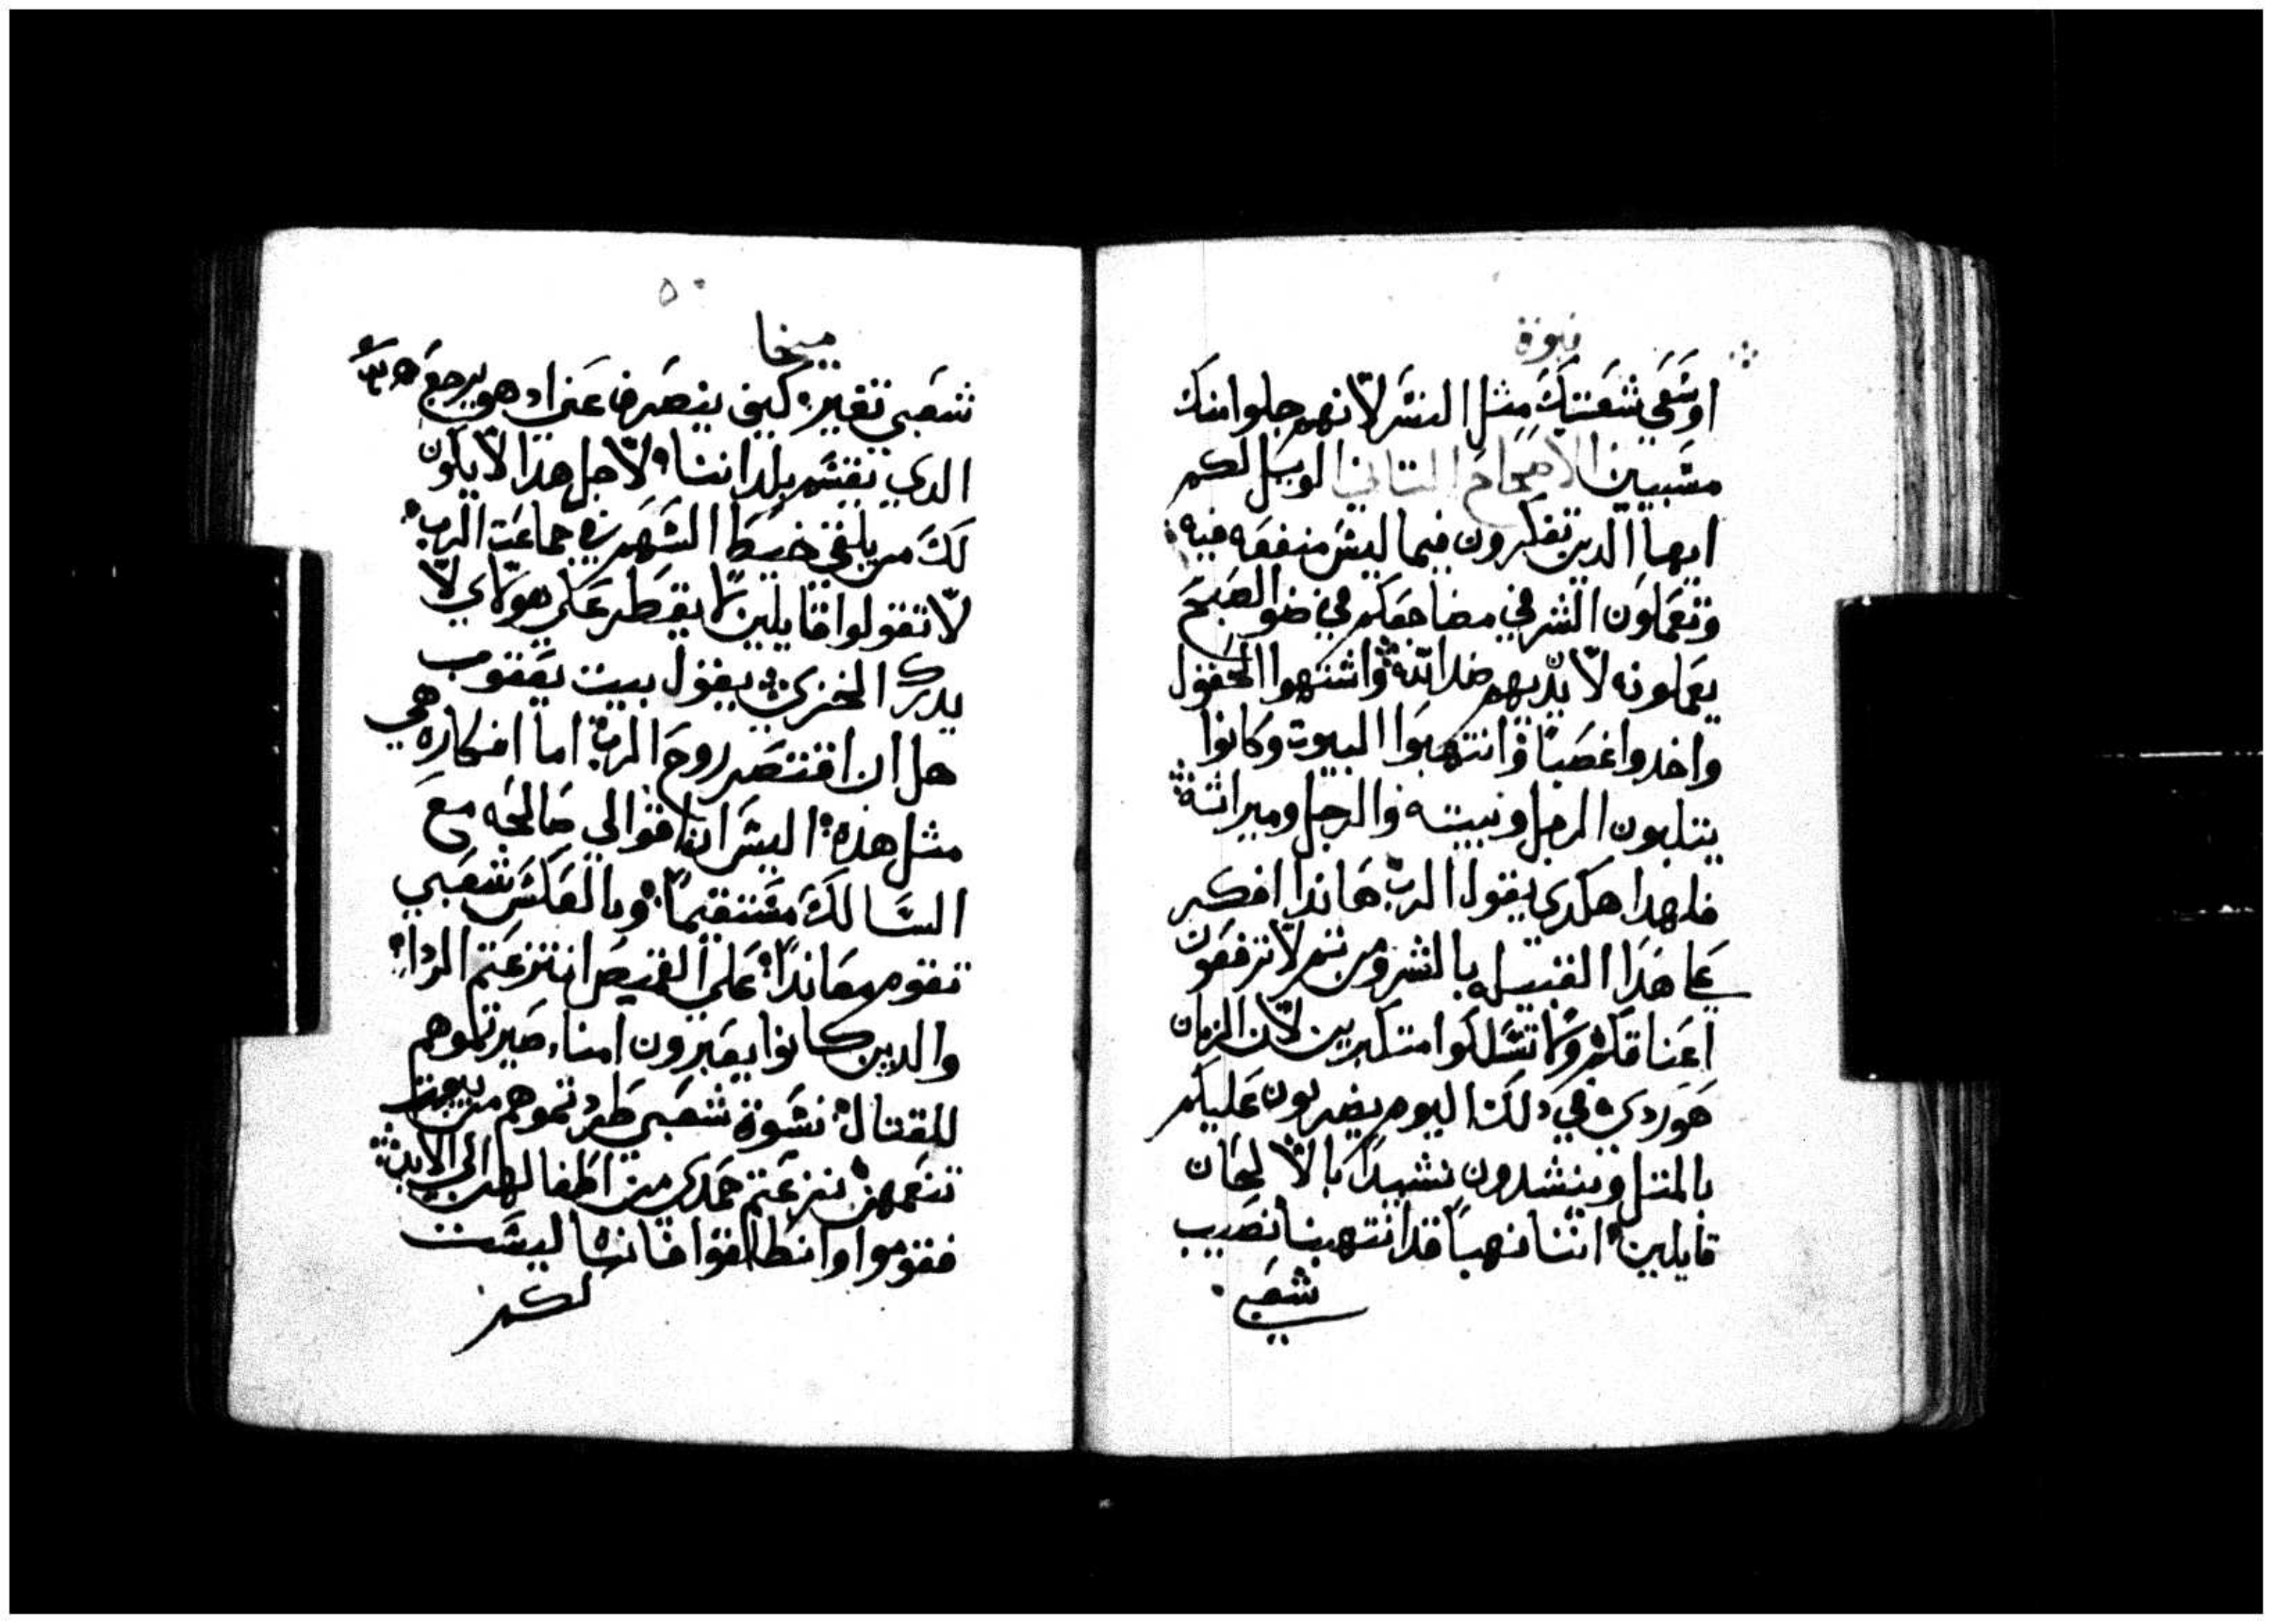 نبوة
اوسعي شعتك مثل النسر لانهم جلوا منك
مسبيين الاصحاح التاني الويل لكم
ايها الدين تفكرون فيما ليس منفعه فيه
وتعملون الشر في مضاجعكم في ضو الصبح
يعملونه لان يديهم ضد الله واشتهوا الحقول
واخدوا غصبا وانتهبوا البيوت وكانوا
يتلبون الرجل وبيته والرجل وميراثه
فلهدا هكدي يقول الرب هاندا افكر
علي هدا القبيله بالشر ومن تم لا ترفعون
اعناقكم ولا تسلكوا متكبرين لان الزمان
هو ردي في دلك اليوم يضربون عليكم
بالمتل وينشدون نشيدا بالالحان
قايلين اننا نهبا قد انتهبنا نصيب
شعبي
٥٠
ميخا
شعبي تغير كيف ينصرف عني اد هو يرجع
الدي يقسم بلداننا لاجل هدا لا يكون
لك من يلقي خيط السهم في جماعة الرب
لا تقولوا قايلين لا يقطر علي هولاي لا
يدرك الخزي يقول بيت يعقوب
هل ان اقتصر روح الرب اما افكاره هي
مثل هذه اليس اقوالي صالحه مع
السالك مستقيما وبالعكس شعبي
تقوم معاندا علي القميص انتزعتم الردا
والدين كانوا يعبرون امنا صيرتموهم
للقتال نسوة شعبي طردتموهم من بيوت
تنعمهن نزعتم حمدي من اطفالهن الي الابد
فقوموا وانطلقوا فانها ليست
لكم